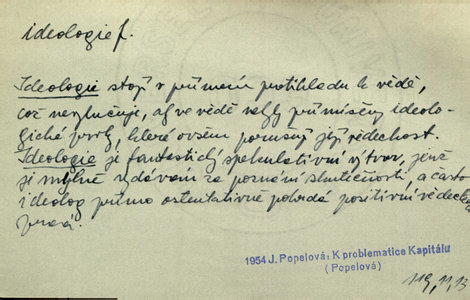 ideologie f.
Ideologie stojí v přímém protikladu k vědě,
což nevylučuje, aby ve vědě nebyly přimíseny ideolo-
gické prvky, které ovšem porušují její vědeckost.
Ideologie je fantastický spekulativní výtvor, jenž
je mylně vydáván za poznání skutečnosti a často
ideolog přímo ostentativně pohrdá positivní vědeckou
prací.
1954 J. Popelová: K problematice Kapitálu
(Popelová)
119, 11, 13